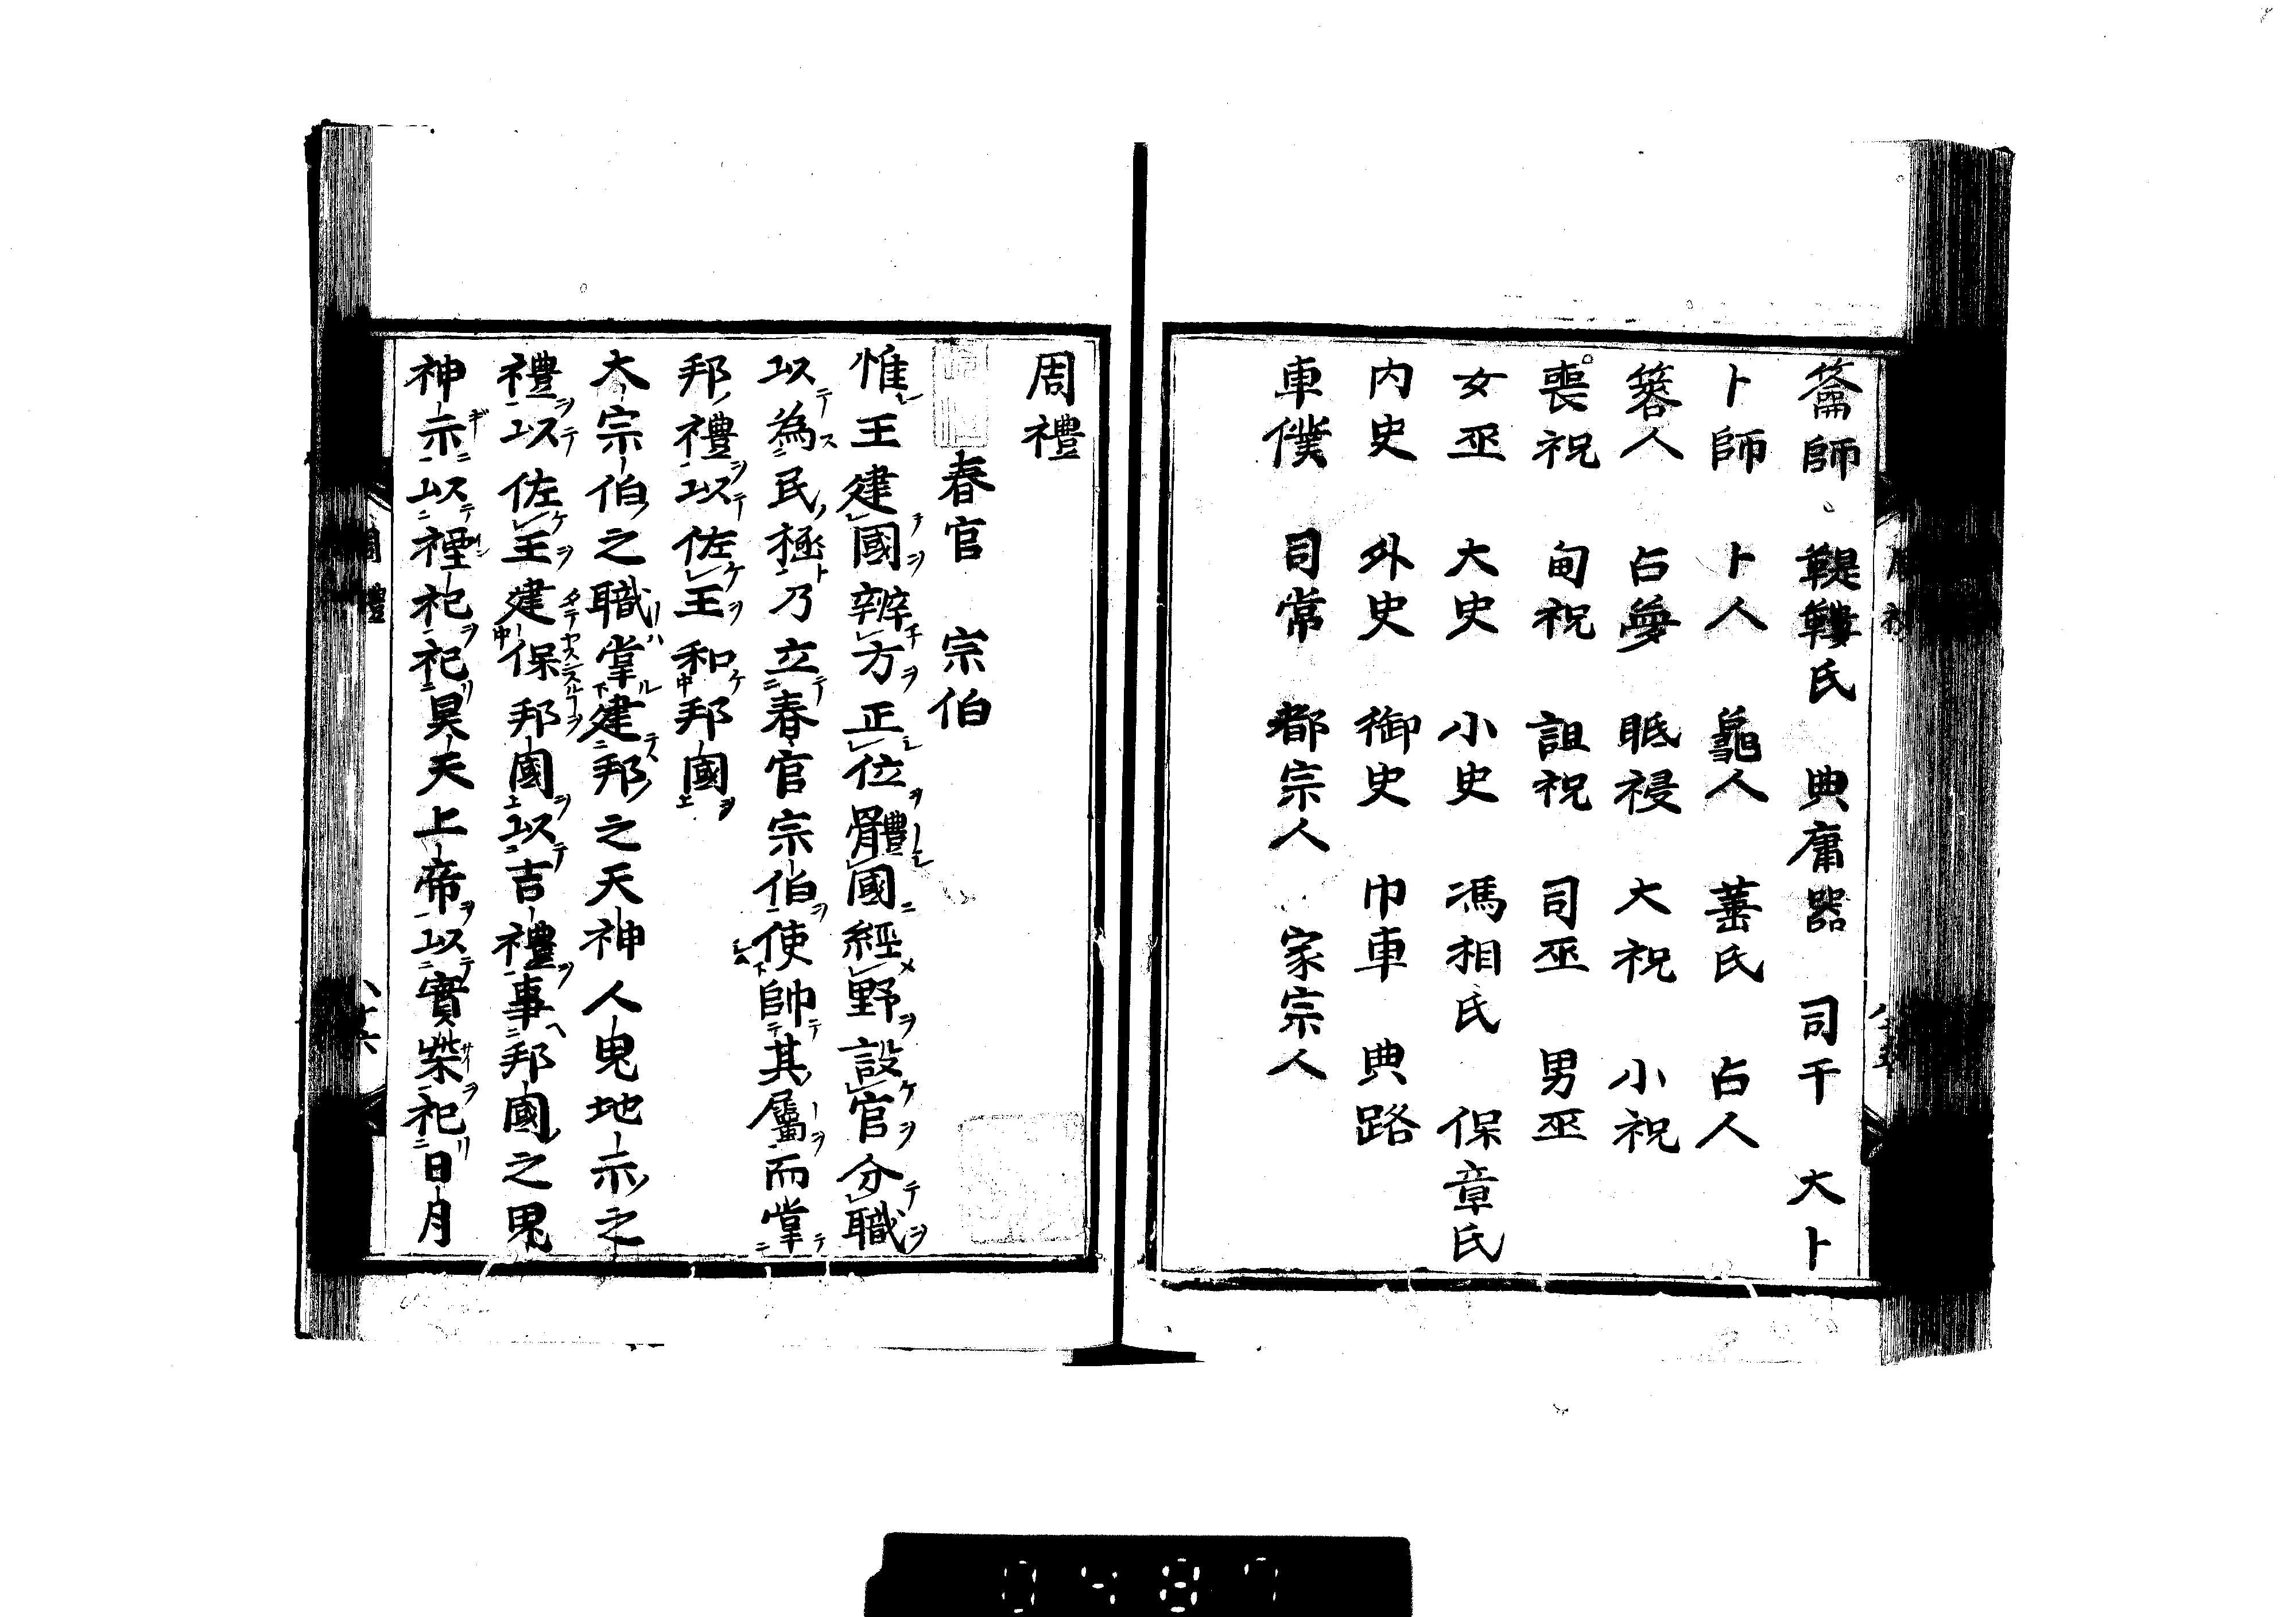 籥師 鞮鞻氏 典庸器 司干 大卜
卜師 卜人 龜人 菙氏 占人
簭人 占夢 眡祲 大祝 小祝
喪祝 甸祝 詛祝 司巫 男巫
女巫 大史 小史 馮相氏 保章氏
内史 外史 御史 巾車 典路
車僕 司常 都宗人 家宗人
周禮
春官 宗伯
惟王建國辨方正位體國經野設官分職
以為民極乃立春官宗伯使帥其屬而掌
邦禮以佐王和邦國
大宗伯之職掌建邦之天神人鬼地示之
禮以佐王建保邦國以吉禮事邦國之鬼
神示以禋祀祀昊天上帝以實柴祀日月
周禮